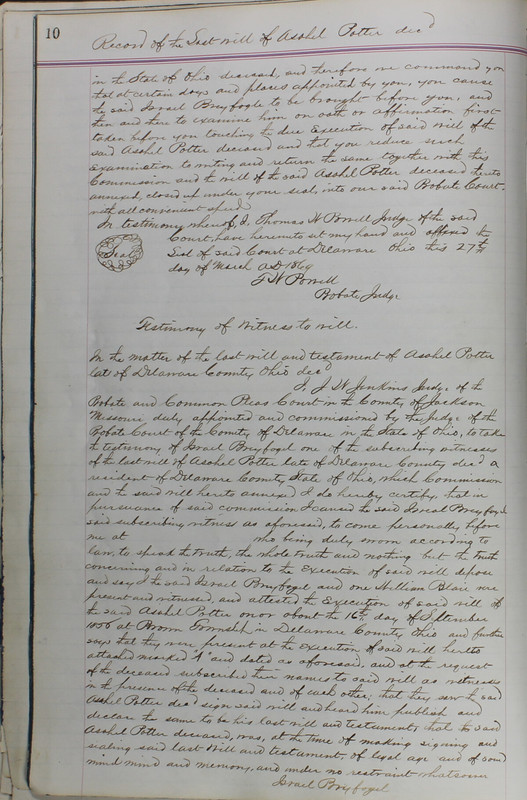 10
Record of the Last will of Asahel Potter dec'd
in the State of Ohio deceased, and therefore we command you
that at certain days and places appointed by you, you cause
the said Israel Breyfogle to be brought before you, and
then and there to examine him on oath or affirmation first
taken before you touching the due Execution of said will of the
said Asahel Potter deceased and that you reduce such
Examination to writing and return the same together with this
Commission and the will of the said Asahel Potter deceased hereto
annexed, closed up under your seal, into our said Probate Court
with all convenient speed
In testimony whereof, I, Thomas W Powell Judge of the said
Court, have hereunto set my hand and affixed the
Seal
Seal of said Court at Delaware Ohio this 27th
day of March AD 1869
T W Powell
Probate Judge
Testimony of Witness to will.
In the matter of the last will and testament of Asahel Potter
late of Delaware County Ohio dec'd
I, J W Jenkins Judge of the
Probate and Common Pleas Court in the County of Jackson
Missouri duly appointed and commissioned by the Judge of the
Probate Court of the County of Delaware in the State of Ohio, to take
the testimony of Israel Breyfogel one of the subscribing witnesses
of the last will of Asahel Potter late of Delaware County dec'd a
resident of Delaware County State of Ohio, which Commission
and the said will hereto annexed I do hereby certify, that in
pursuance of said commission I caused the said Isreal Breyfogel
said subscribing witness as aforesaid, to come personally before
me at who being duly sworn according to
law, to speak the truth, the whole truth and nothing but the truth
concerning and in relation to the Execution of said will depose
and say I the said Israel Breyfogel and one William Blair were
present and witnessed, and attested the Execution of said will of
the said Asahel Potter on or about the 16th day of September
1856 at Brown Township in Delaware County Ohio and further
says that they were present at the execution of said will hereto
attached marked "A" and dated as aforesaid, and at the request
of the deceased subscribed their names to said will as witnesses
in the presence of the deceased and of each other; that they saw the said
Asahel Potter dec'd sign said will and heard him publish and
declare the same to be his last will and testament; that the said
Asahel Potter deceased, was, at the time of making signing and
sealing said last Will and testament, of legal age and of sound
mind mind and memory, and under no restraint whatsoever
Israel Breyfogel